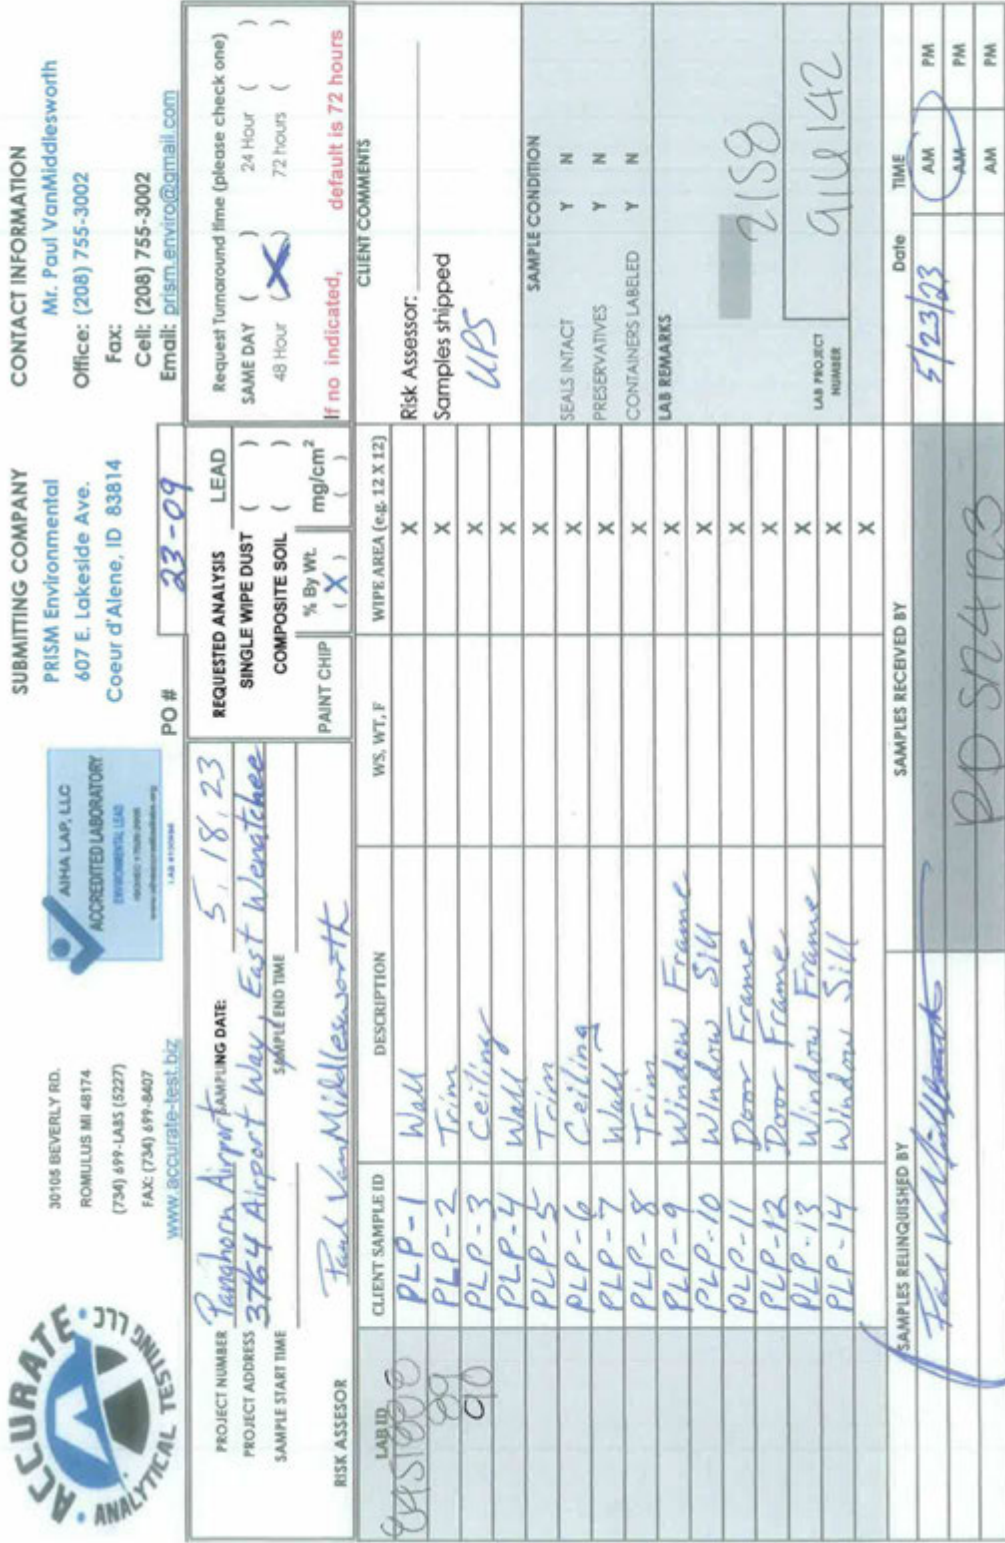 ACCURATE
ANALYTICAL TESTING LLC
30105 BEVERLY RD.
ROMULUS MI 48174
(734) 699-LABS (5227)
FAX: (734) 699-8407
www.accurate-test.biz
AIHA LAP, LLC
ACCREDITED LABORATORY
ENVIRONMENTAL LEAD
SUBMITTING COMPANY
PRISM Environmental
607 E. Lakeside Ave.
Coeur d'Alene, ID 83814
PO # 23-09
CONTACT INFORMATION
Mr. Paul VanMiddlesworth
Office: (208) 755-3002
Fax:
Cell: (208) 755-3002
Email: prism.enviro@gmail.com
PROJECT NUMBER Pangborn Airport SAMPLING DATE: 5.18.23
PROJECT ADDRESS 3764 Airport Way, East Wenatchee
SAMPLE START TIME SAMPLE END TIME
RISK ASSESOR Paul VanMiddlesworth
REQUESTED ANALYSIS LEAD
SINGLE WIPE DUST ( )
COMPOSITE SOIL ( )
PAINT CHIP % By Wt. (X) mg/cm² ( )
Request Turnaround time (please check one)
SAME DAY ( ) 24 Hour ( )
48 Hour (X) 72 hours ( )
If no indicated, default is 72 hours
LAB ID CLIENT SAMPLE ID DESCRIPTION WS, WT, F WIPE AREA (e.g. 12 X 12)
PLP-1 Wall X
89 PLP-2 Trim X
90 PLP-3 Ceiling X
PLP-4 Wall X
PLP-5 Trim X
PLP-6 Ceiling X
PLP-7 Wall X
PLP-8 Trim X
PLP-9 Window Frame X
PLP-10 Window Sill X
PLP-11 Door Frame X
PLP-12 Door Frame X
PLP-13 Window Frame X
PLP-14 Window Sill X
X
CLIENT COMMENTS
Risk Assessor:
Samples shipped
UPS
SAMPLE CONDITION
SEALS INTACT Y N
PRESERVATIVES Y N
CONTAINERS LABELED Y N
LAB REMARKS
2158
LAB PROJECT
NUMBER
SAMPLES RELINQUISHED BY SAMPLES RECEIVED BY Date TIME
5/23/23 AM PM
AM PM
AM PM